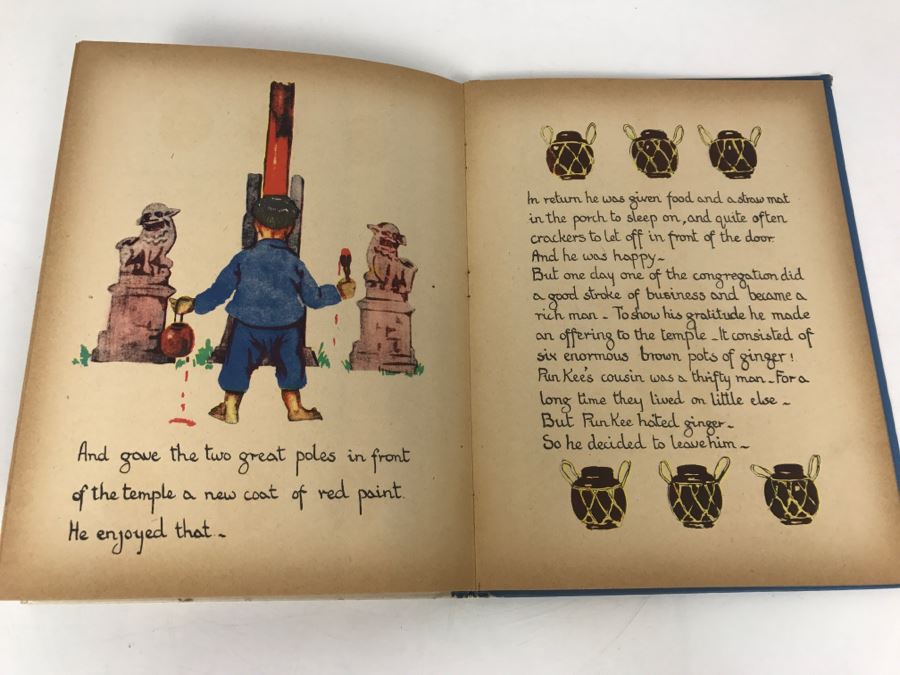 And gave the two great poles in front
of the temple a new coat of red paint.
He enjoyed that~
In return he was given food and a straw mat
in the porch to sleep on, and quite often
crackers to let off in front of the door.
And he was happy~
But one day one of the congregation did
a good stroke of business and became a
rich man - To show his gratitude he made
an offering to the temple - It consisted of
six enormous brown pots of ginger!
Pun Kee's cousin was a thrifty man - For a
long time they lived on little else ~
But Pun Kee hated ginger~
So he decided to leave him ~